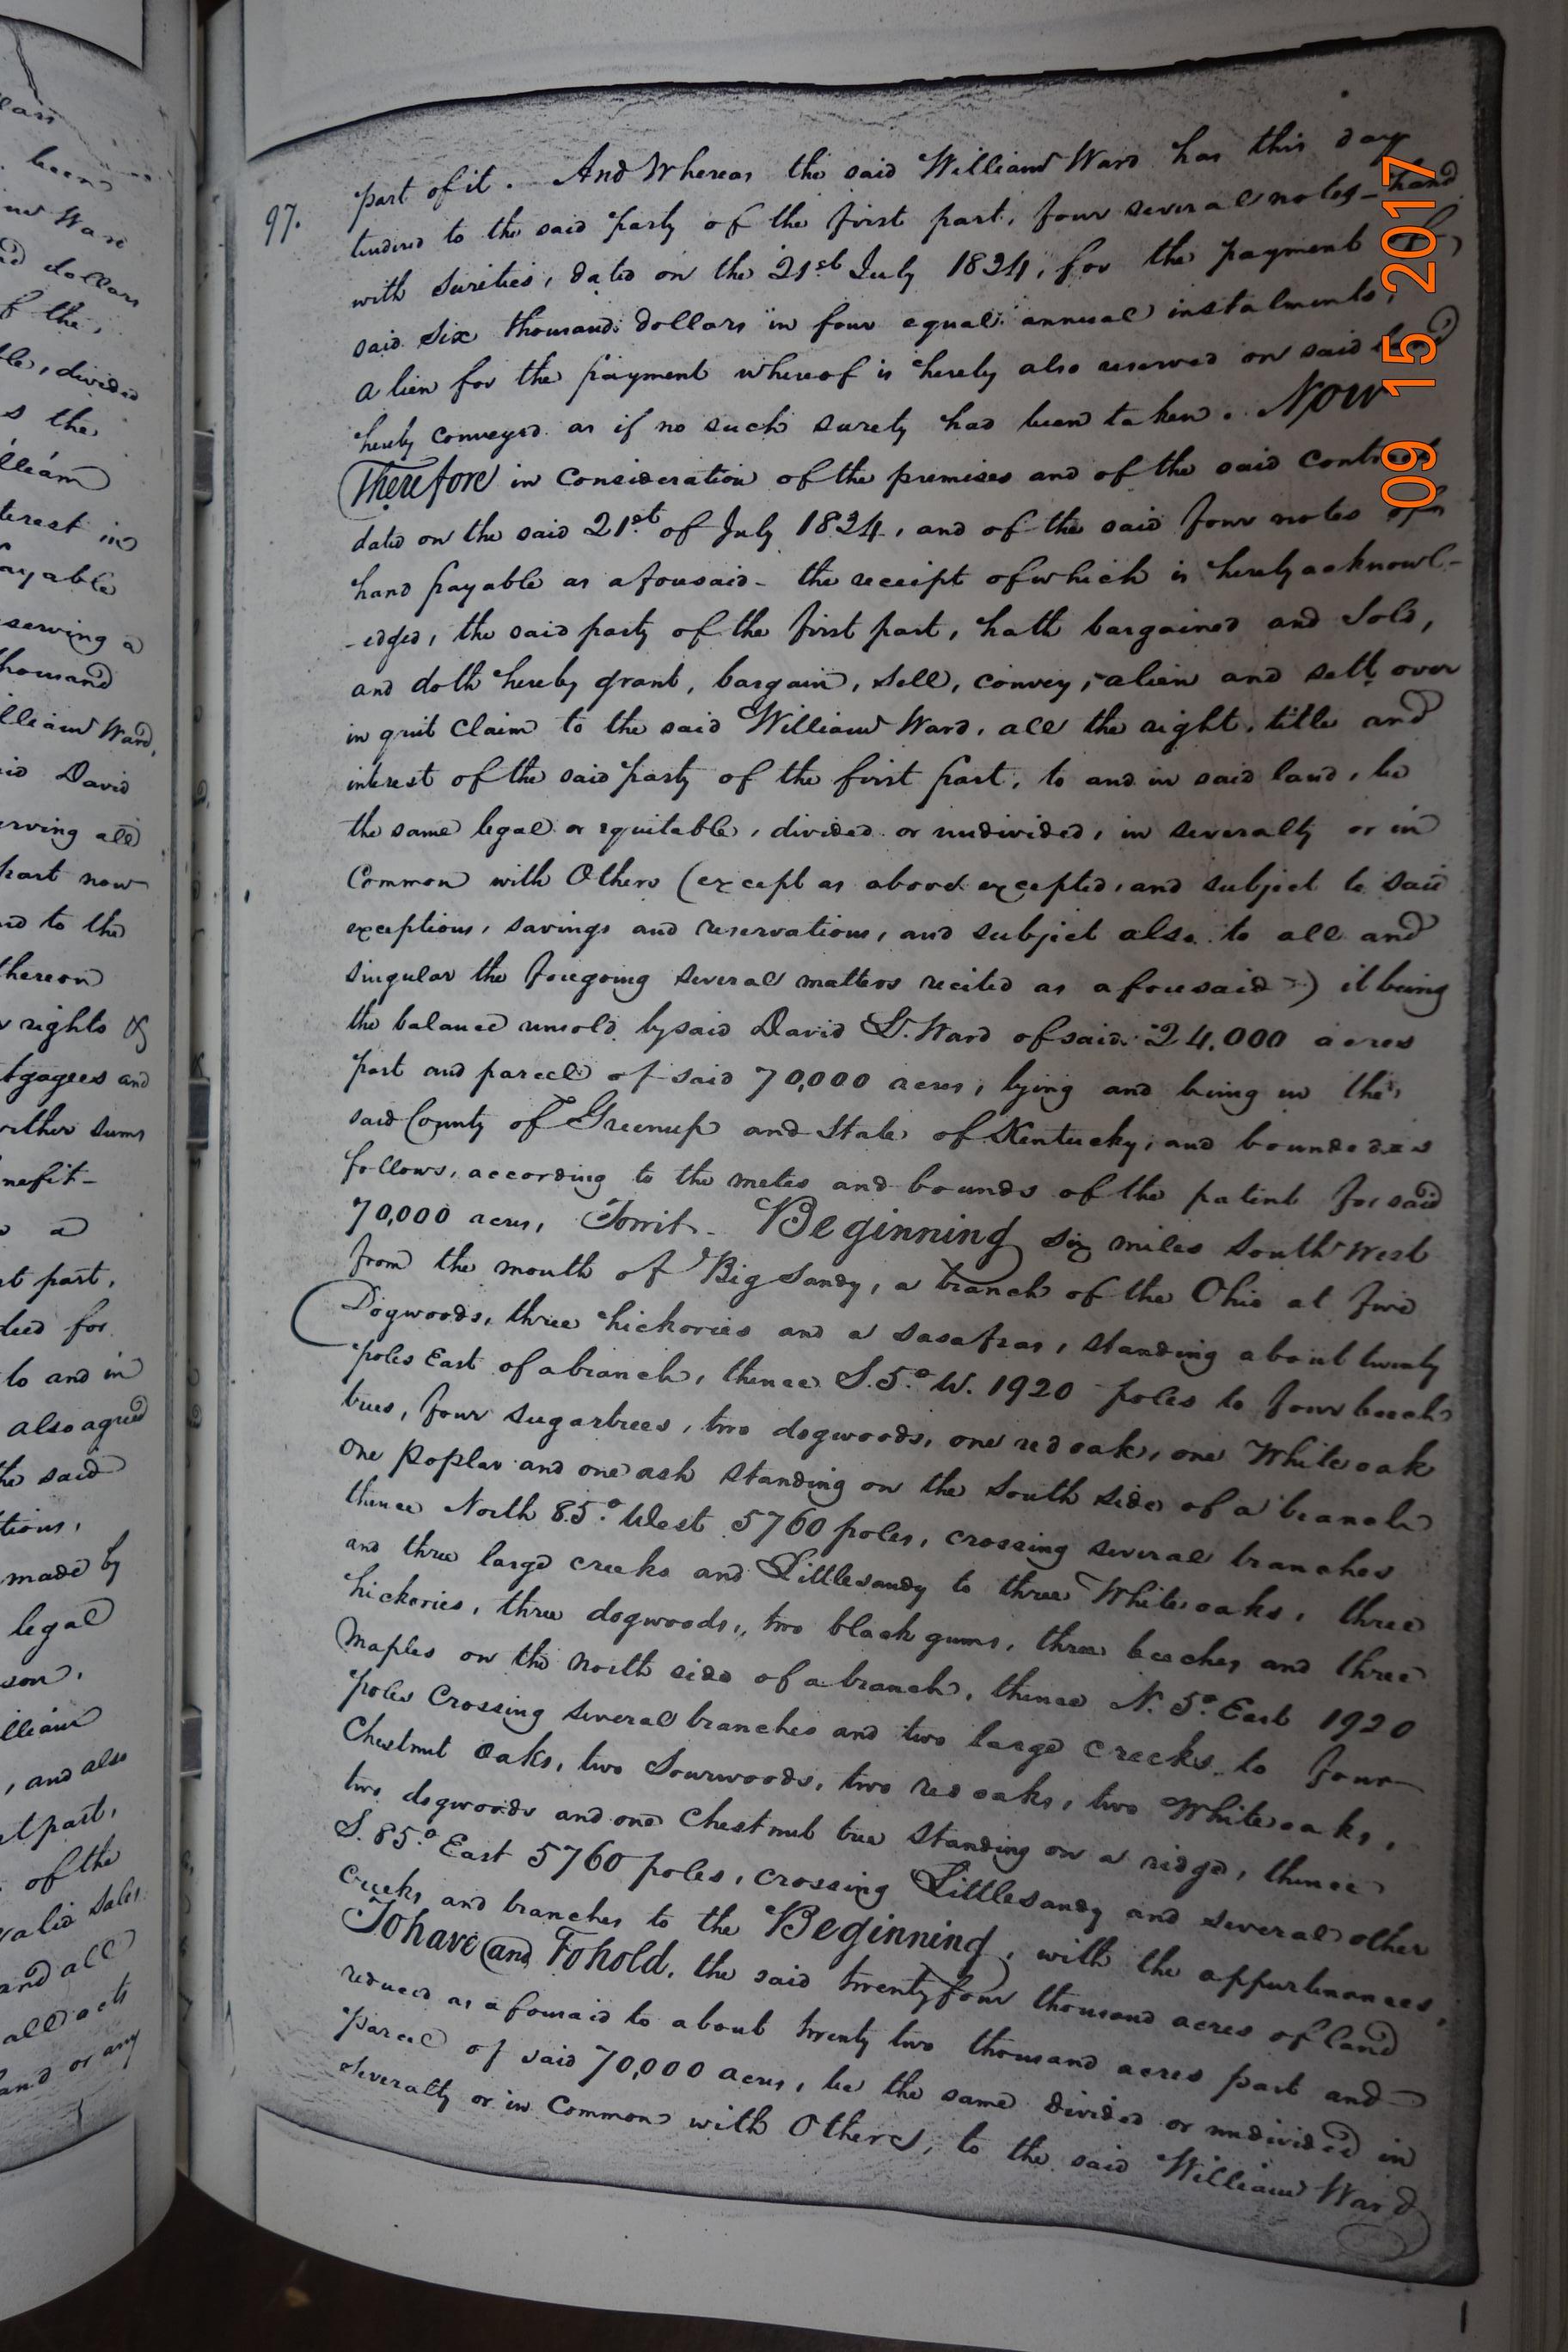 lain
been
Ward
dollars
of the,
ble, divided
s the
illiam
terest in
ayable
serving a
housand
lliam Ward,
id David
erving all
part now
nd to the
thereon
r rights &
tgagees and
rither sums
nefit-
a
st part,
deed for
to and in
also agreed
he said
tions,
made by
legal
son,
illiam
, and also
st part,
of the
valid sales
and all
all acts
land or any
97.
part of it. And Whereas the said William Ward has this day
tendered to the said party of the first part, four several notes - hand
with sureties, dated on the 21st July 1824, for the payment of
said six thousand dollars in four equal annual instalments,
a lien for the payment whereof is hereby also reserved on said land
hereby conveyed as if no such surety had been taken. Now
Therefore in Consideration of the premises and of the said contract
dated on the said 21st of July 1824, and of the said four notes of
hand payable as afousaid - the receipt of which is hereby acknowl-
-edged, the said party of the first part, hath bargained and Sold,
and doth hereby grant, bargain, sell, convey, alien and sett over
in quit Claim to the said William Ward, all the right, title and
interest of the said party of the first part, to and in said land, be
the same legal or equitable, divided or undivided, in severalty or in
Common with Others (except as above excepted, and subject to said
exceptions, savings and reservations, and subject also to all and
singular the foregoing several matters recited as afousaid -) it being
the balance unsold by said David L. Ward of said 24,000 acres
part and parcel of said 70,000 acres, lying and being in the
said County of Greenup and State of Kentucky, and bounded as
follows, according to the metes and bounds of the patent for said
70,000 acres, Towit - Beginning six miles South West
from the mouth of Big Sandy, a branch of the Ohio at five
Dogwoods, three hickories and a sasafras, standing about twenty
poles East of a branch, thence S. 5.° W. 1920 poles to four beech
trees, four sugartrees, two dogwoods, one red oak, one White oak
one poplar and one ash standing on the South side of a branch
thence North 85.° West 5760 poles, crossing several branches
and three large creeks and Littlesandy to three White oaks, three
hickories, three dogwoods, two black gums, three beeches and three
maples on the north side of a branch, thence N. 5° East 1920
poles Crossing several branches and two large creeks to four
Chestnut Oaks, two Sourwoods, two red oaks, two White oaks,
two dogwoods and one Chestnut tree standing on a ridge, thence
S. 85.° East 5760 poles, crossing Littlesandy and several other
creeks and branches to the Beginning, with the appurtenances,
To have and To hold, the said twenty four thousand acres of land
reduced as afousaid to about twenty two thousand acres part and
parcel of said 70,000 acres, be the same divided or undivided in
severalty or in Common with Others, to the said William Ward
09 15 2017